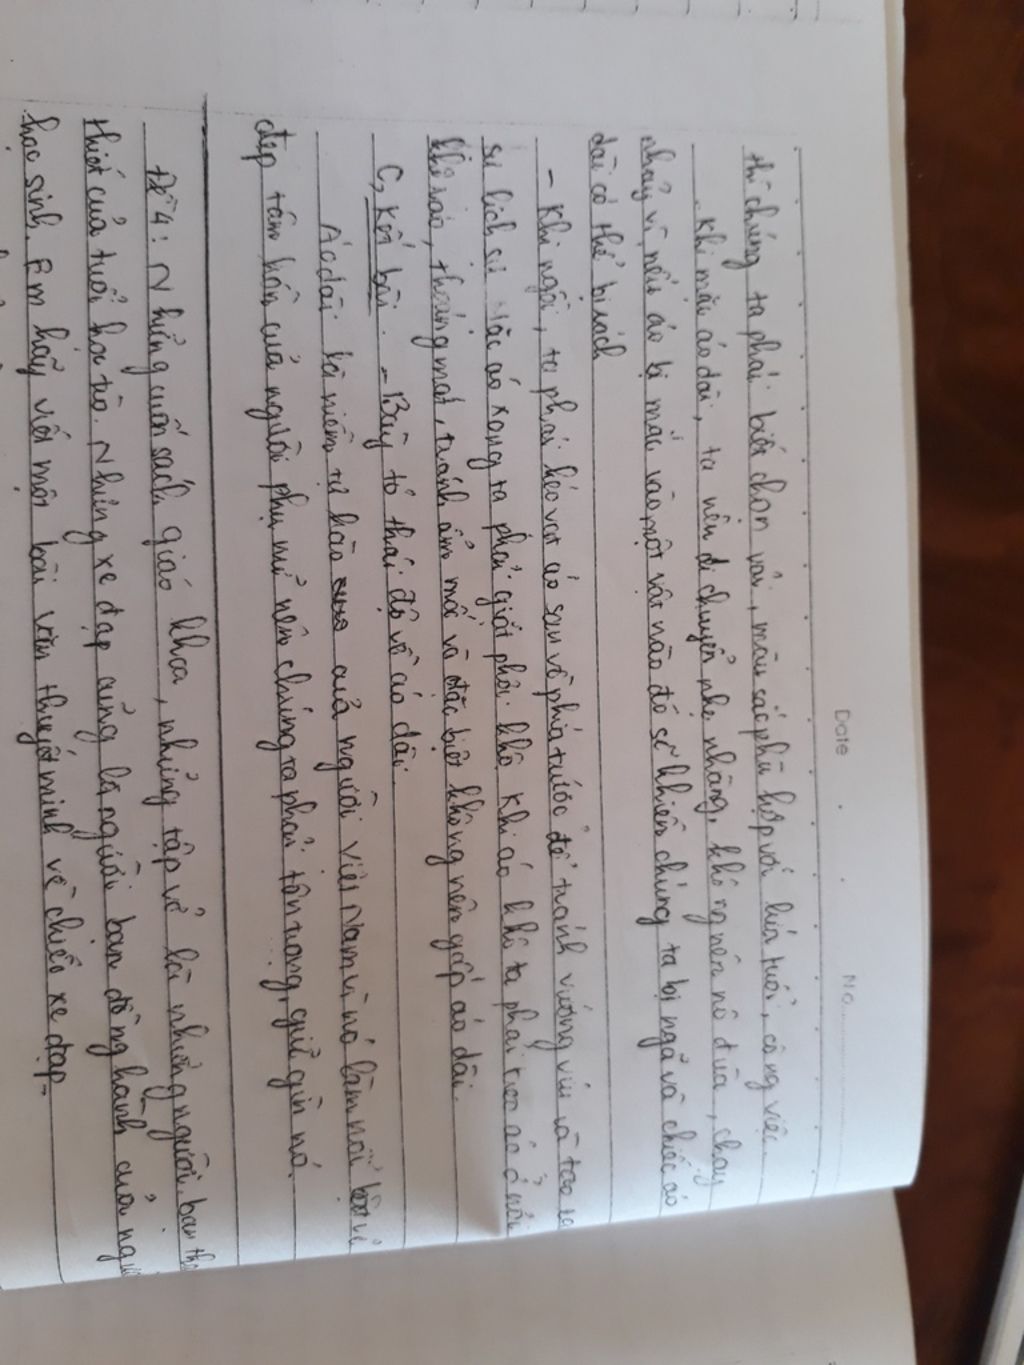 Date
No.
thì chúng ta phải biết chọn vải, màu sắc phù hợp với lứa tuổi, công việc.
- Khi mặc áo dài, ta nên di chuyển nhẹ nhàng, không nên nô đùa, chạy
nhảy vì nếu áo bị mắc vào một vật nào đó sẽ khiến chúng ta bị ngã và chiếc áo
dài có thể bị rách
- Khi ngồi, ta phải kéo vạt áo sau về phía trước để tránh vướng víu và tạo ra
sự lịch sự. Mặc áo xong ta phải giặt phơi khô. Khi áo khô ta phải treo áo ở nơi
khô ráo, thoáng mát, tránh ẩm mốc và đặc biệt không nên gấp áo dài.
C, Kết bài. - Bày tỏ thái độ về áo dài
Áo dài là niềm tự hào của người Việt Nam vì nó làm nổi bật vẻ
đẹp tâm hồn của người phụ nữ nên chúng ta phải tôn trọng, giữ gìn nó.
Đề 4: Những cuốn sách giáo khoa, những tập vở là những người bạn
thiết của tuổi học trò. Những xe đạp cũng là người bạn đồng hành của
học sinh. Em hãy viết một bài văn thuyết minh về chiếc xe đạp.